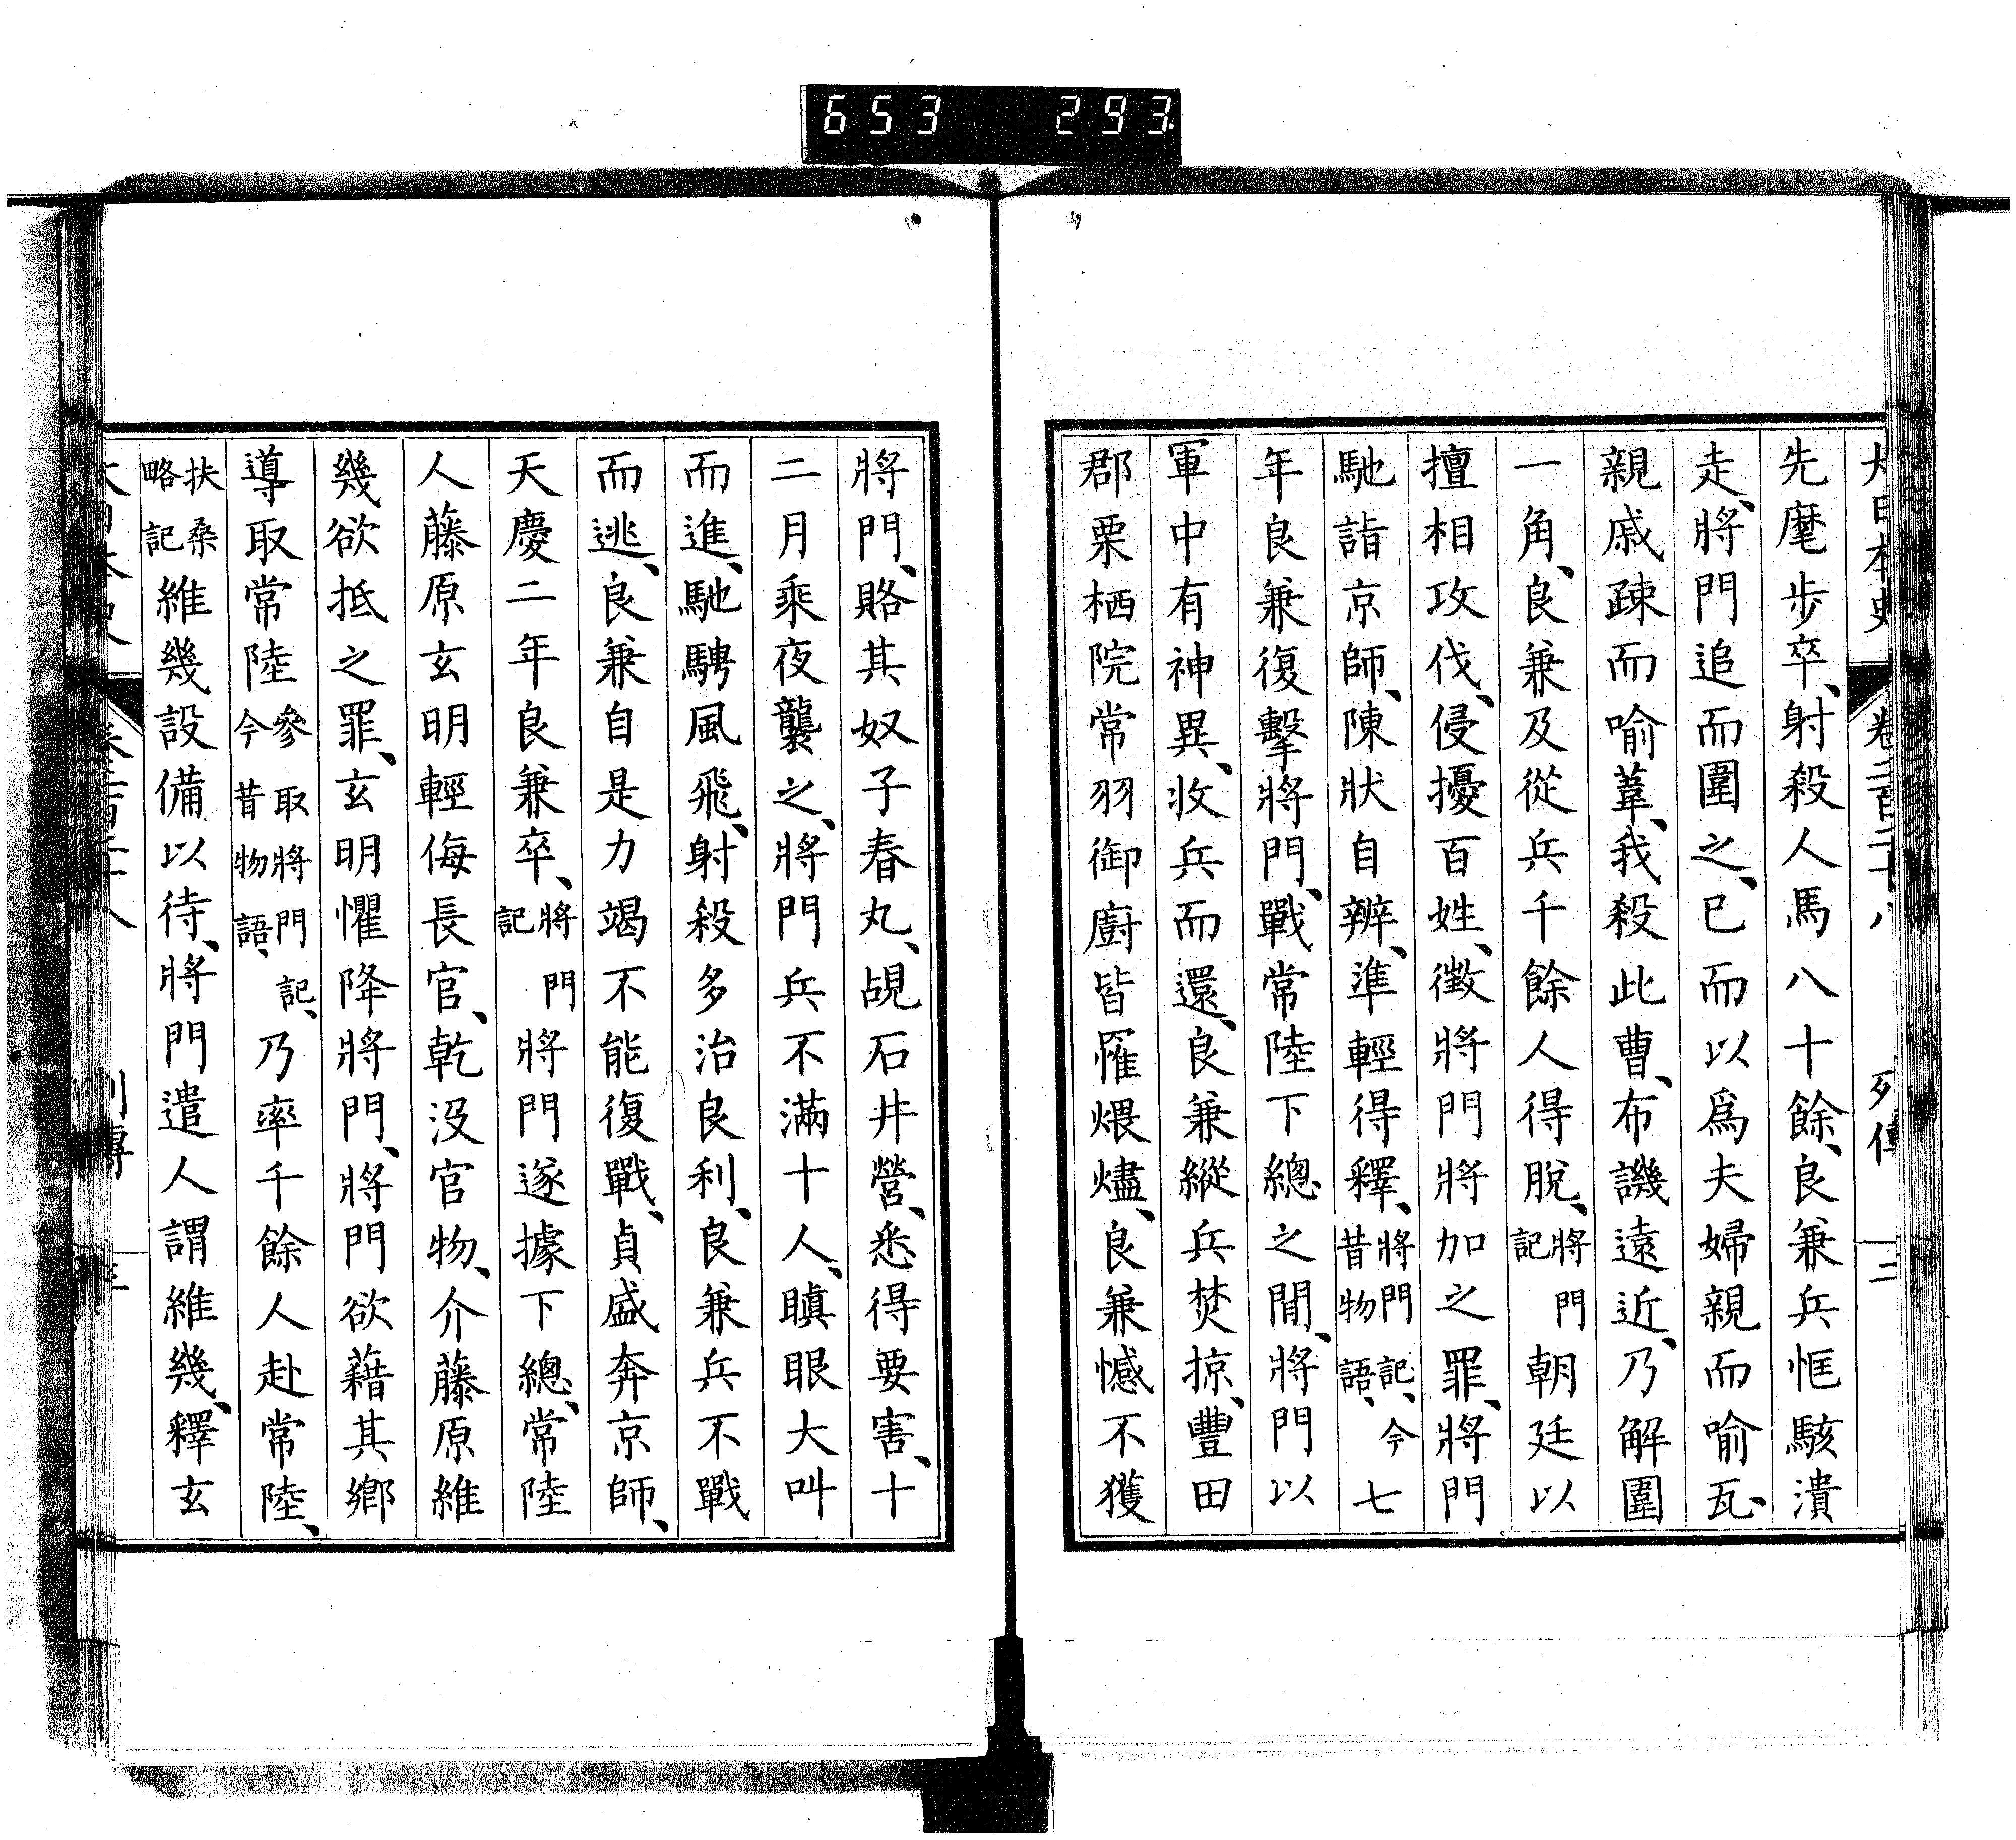 653 293
大日本史 卷二百二十八 列傳 三
先麾步卒、射殺人馬八十餘、良兼兵恇駭潰
走、將門追而圍之、已而以爲夫婦親而喻瓦、
親戚疎而喻葦、我殺此曹、布譏遠近、乃解圍
一角、良兼及從兵千餘人得脫、將門記朝廷以
擅相攻伐、侵擾百姓、徵將門將加之罪、將門
馳詣京師、陳狀自辨、準輕得釋、將門記、今昔物語、七
年良兼復擊將門、戰常陸下總之間、將門以
軍中有神異、收兵而還、良兼縱兵焚掠、豐田
郡栗栖院常羽御廚皆罹煨燼、良兼憾不獲
將門、賂其奴子春丸、覘石井營、悉得要害、十
二月乘夜襲之、將門兵不滿十人、瞋眼大叫
而進、馳騁風飛、射殺多治良利、良兼兵不戰
而逃、良兼自是力竭不能復戰、貞盛奔京師、
天慶二年良兼卒、將門記將門遂據下總、常陸
人藤原玄明輕侮長官、乾沒官物、介藤原維
幾欲抵之罪、玄明懼降將門、將門欲藉其鄉
導取常陸參取將門記、今昔物語、乃率千餘人赴常陸、
扶桑略記維幾設備以待、將門遣人謂維幾、釋玄